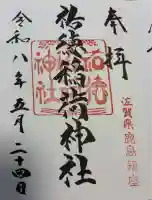 奉拝
祐徳稲荷神社
令和八年五月二十四日
佐賀県鹿島市鎮座
祐徳
神社